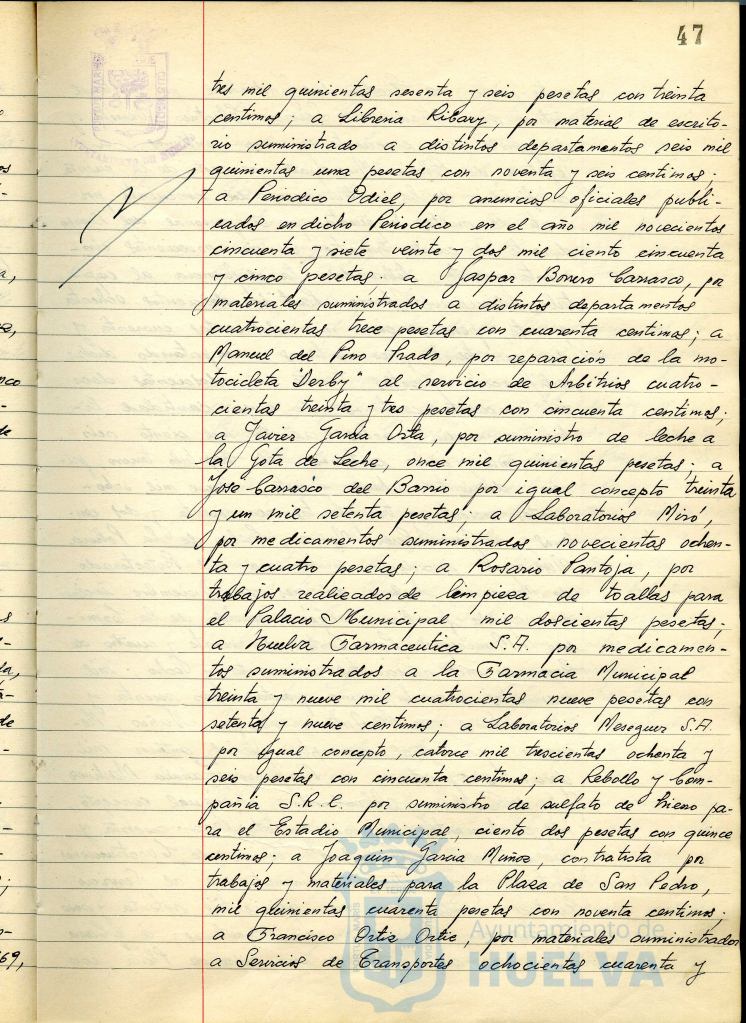 47
tres mil quinientas sesenta y seis pesetas con treinta
centimos; a Libreria Ribary, por material de escrito-
rio suministrado a distintos departamentos seis mil
quinientas una pesetas con noventa y seis centimos;
a Periodico Odiel, por anuncios oficiales publi-
cados en dicho Periodico en el año mil novecientos
cincuenta y siete veinte y dos mil ciento cincuenta
y cinco pesetas; a Gaspar Borrero Carrasco, por
materiales suministrados a distintos departamentos
cuatrocientas trece pesetas con cuarenta centimos; a
Manuel del Pino Prado, por reparación de la mo-
tocicleta "Derby" al servicio de Arbitrios cuatro-
cientas treinta y tres pesetas con cincuenta centimos;
a Javier Garcia Orta, por suministro de leche a
la Gota de Leche, once mil quinientas pesetas; a
José Carrasco del Barrio por igual concepto treinta
y un mil setenta pesetas; a Laboratorios Miró,
por medicamentos suministrados novecientas ochen-
ta y cuatro pesetas; a Rosario Pantoja, por
trabajos realizados de limpieza de toallas para
el Palacio Municipal mil doscientas pesetas;
a Huelva Farmaceutica S.A. por medicamen-
tos suministrados a la Farmacia Municipal
treinta y nueve mil cuatrocientas nueve pesetas con
setenta y nueve centimos; a Laboratorios Meseguer S.A.
por igual concepto, catorce mil trescientas ochenta y
seis pesetas con cincuenta centimos; a Rebollo y Com-
pañia S.R.C. por suministro de sulfato de hierro pa-
ra el Estadio Municipal, ciento dos pesetas con quince
centimos; a Joaquin Garcia Muñoz, contratista por
trabajos y materiales para la Plaza de San Pedro,
mil quinientas cuarenta pesetas con noventa centimos;
a Francisco Ortiz Ortiz, por materiales suministrados
a Servicios de Transportes ochocientas cuarenta y
Ayuntamiento de
HUELVA